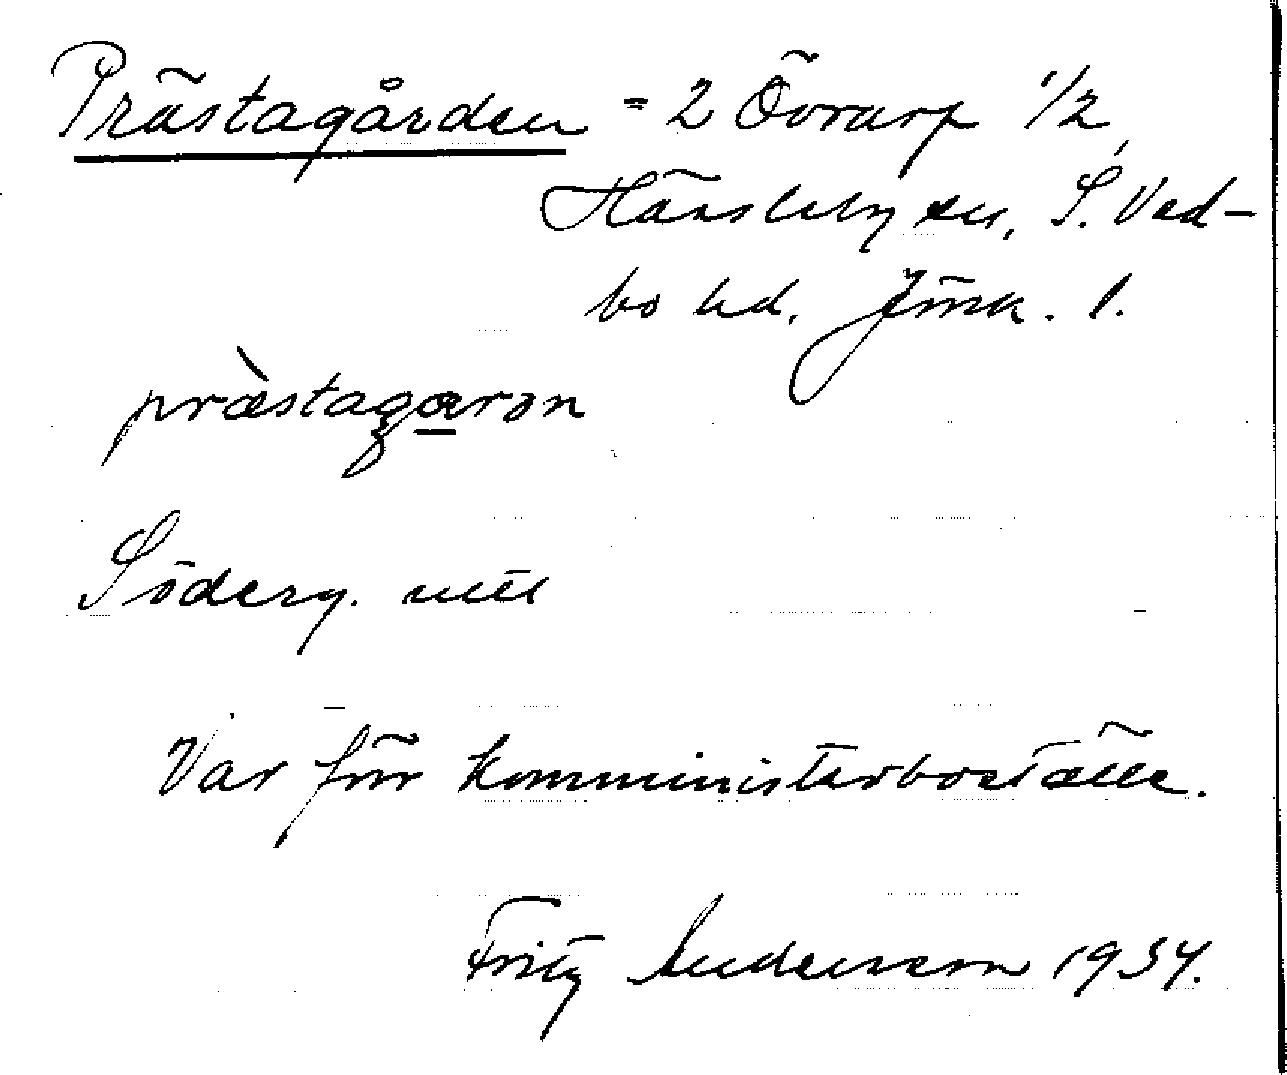 Prästagården = 2 Övrarp 1/2
Hässleby sn, S. Ved-
bo hd. Jönk. l.
prästagaron
Söderg. uttl
Var förr komministerboställe.
Fritz Anderson 1934.